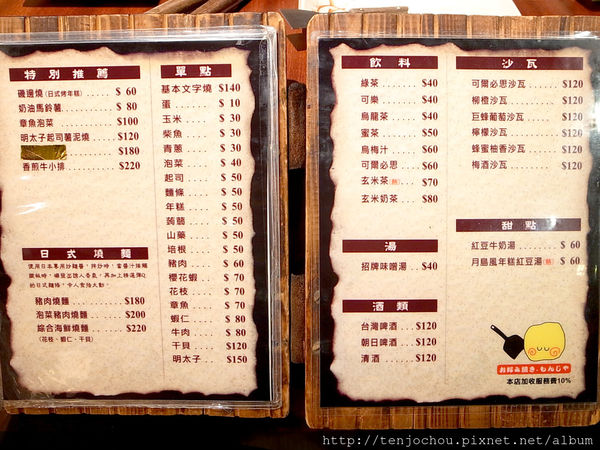 特別推薦
磯邊燒(日式烤年糕)...... $ 60
奶油馬鈴薯 $ 80
章魚泡菜 $100
明太子起司薯泥燒 $120
$180
香煎牛小排 $220
日式燒麵
豬肉燒麵 $180
泡菜豬肉燒麵 $200
綜合海鮮燒麵 $220
(花枝、蝦仁、干貝)
單點
基本文字燒 $140
蛋 $ 10
玉米 $ 30
柴魚 $ 30
青蔥 $ 30
泡菜 $ 40
起司 $ 50
麵條 $ 50
年糕 $ 50
蒟蒻 $ 50
山藥 $ 50
培根 $ 50
豬肉 $ 60
櫻花蝦 $ 70
花枝 $ 70
章魚 $ 70
蝦仁 $ 80
牛肉 $ 80
干貝 $120
明太子 $150
飲料
綠茶 $40
可樂 $40
烏龍茶 $40
蜜茶 $50
烏梅汁 $60
可爾必思 $60
玄米茶(熱) $70
玄米奶茶 $80
湯
招牌味噌湯 $40
酒類
台灣啤酒 $120
朝日啤酒 $120
清酒 $120
沙瓦
可爾必思沙瓦 $120
柳橙沙瓦 $120
巨蜂葡萄沙瓦 $120
檸檬沙瓦 $120
蜂蜜柚香沙瓦 $120
梅酒沙瓦 $120
甜點
紅豆牛奶湯 $ 60
月島風年糕紅豆湯(熱) $ 60
お好み焼き・もんじゃ
本店加收服務費10%
http://tenjochou.pixnet.net/album